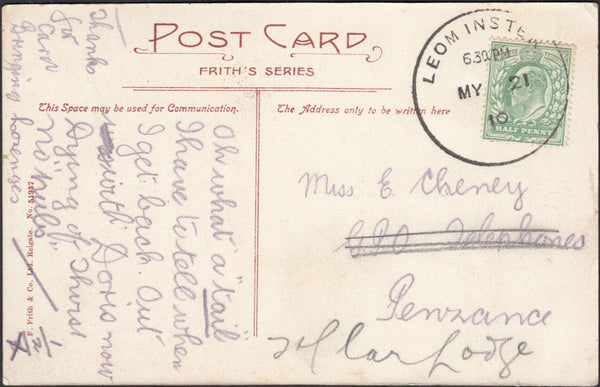 POST CARD
FRITH'S SERIES
This Space may be used for Communication.
The Address only to be written here
LEOMINSTER
6.30 PM
MY 21
10
HALF PENNY
Oh what a "tail"
I have to tell when
I get back. Out
with Doris now
Dying of Thirst
no pubs
Thanks
for
Card
Bringing lozenges
Miss E Cheney
GPO Telephones
Penzance
St Clar Lodge
F. Frith & Co. Ltd. Reigate. No. 51937